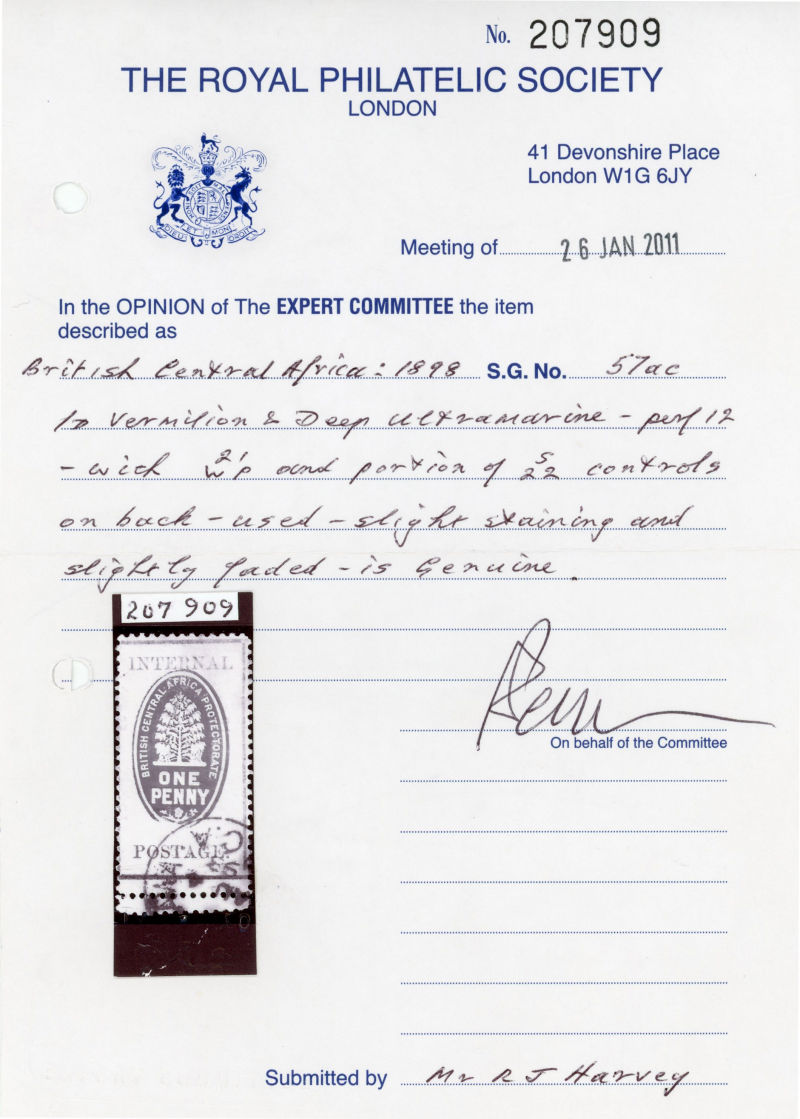 No. 207909
THE ROYAL PHILATELIC SOCIETY
LONDON
41 Devonshire Place
London W1G 6JY
DIEU ET MON DROIT
Meeting of 26 JAN 2011
In the OPINION of The EXPERT COMMITTEE the item
described as
British Central Africa: 1898 S.G. No. 57ac
1d Vermilion & Deep Ultramarine - perf 12
- with and portion of controls
on back - used - slight staining and
slightly faded - is Genuine.
207 909
INTERNAL
BRITISH CENTRAL AFRICA PROTECTORATE
ONE
PENNY
POSTAGE.
On behalf of the Committee
Submitted by Mr R J Harvey